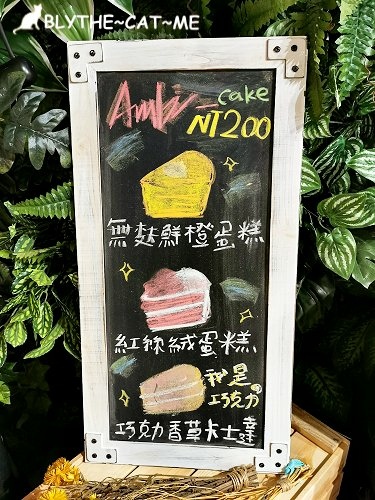 BLYTHE~CAT~ME
Ambi-cake
NT200
無麩鮮橙蛋糕
紅絲絨蛋糕
我是
巧克力
巧克力香草卡士達